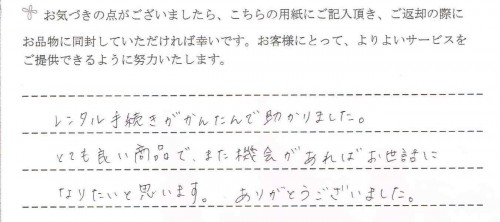 お気づきの点がございましたら、こちらの用紙にご記入頂き、ご返却の際に
お品物に同封していただければ幸いです。お客様にとって、よりよいサービスを
ご提供できるように努力いたします。
レンタル手続きがかんたんで助かりました。
とても良い商品で、また機会があればお世話に
なりたいと思います。ありがとうございました。